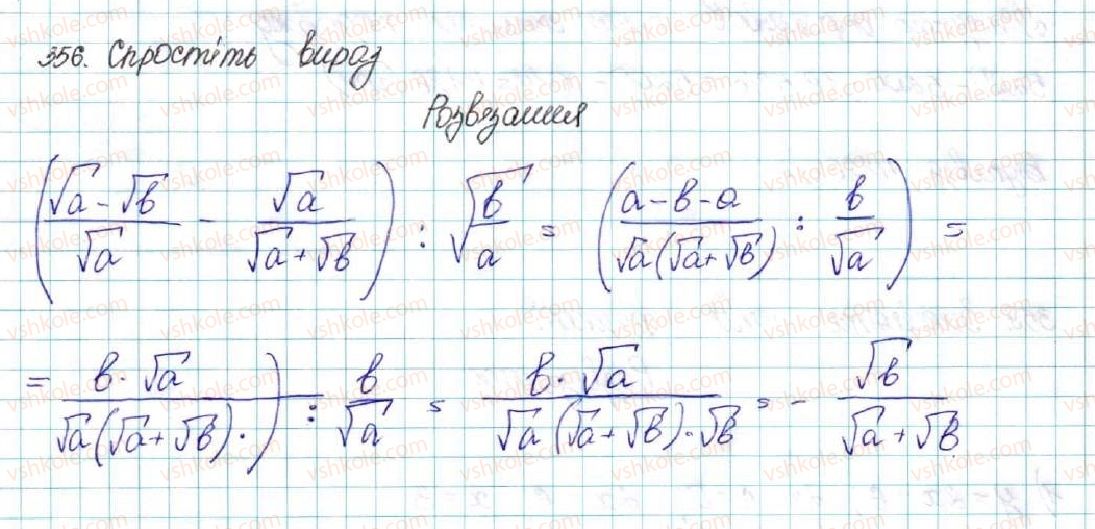 356. Спростіть вираз
Розвязання
((√a - √b)/√a - √a/(√a + √b)) : √(b/a) = ((a - b - a)/(√a(√a + √b)) : b/√a) =
= (b · √a)/(√a(√a + √b) ·) ) : b/√a = (b · √a)/(√a(√a + √b) · √b) = - √b/(√a + √b)